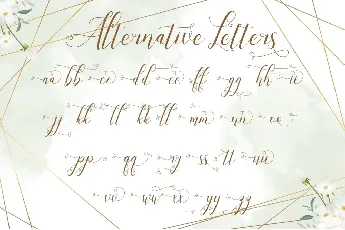 Alternative Letters
aa bb cc dd ee ff gg hh ic
jj kk ll kk ll mm nn oe
pp qq rj ss tt uu
vv ww xx yy zz